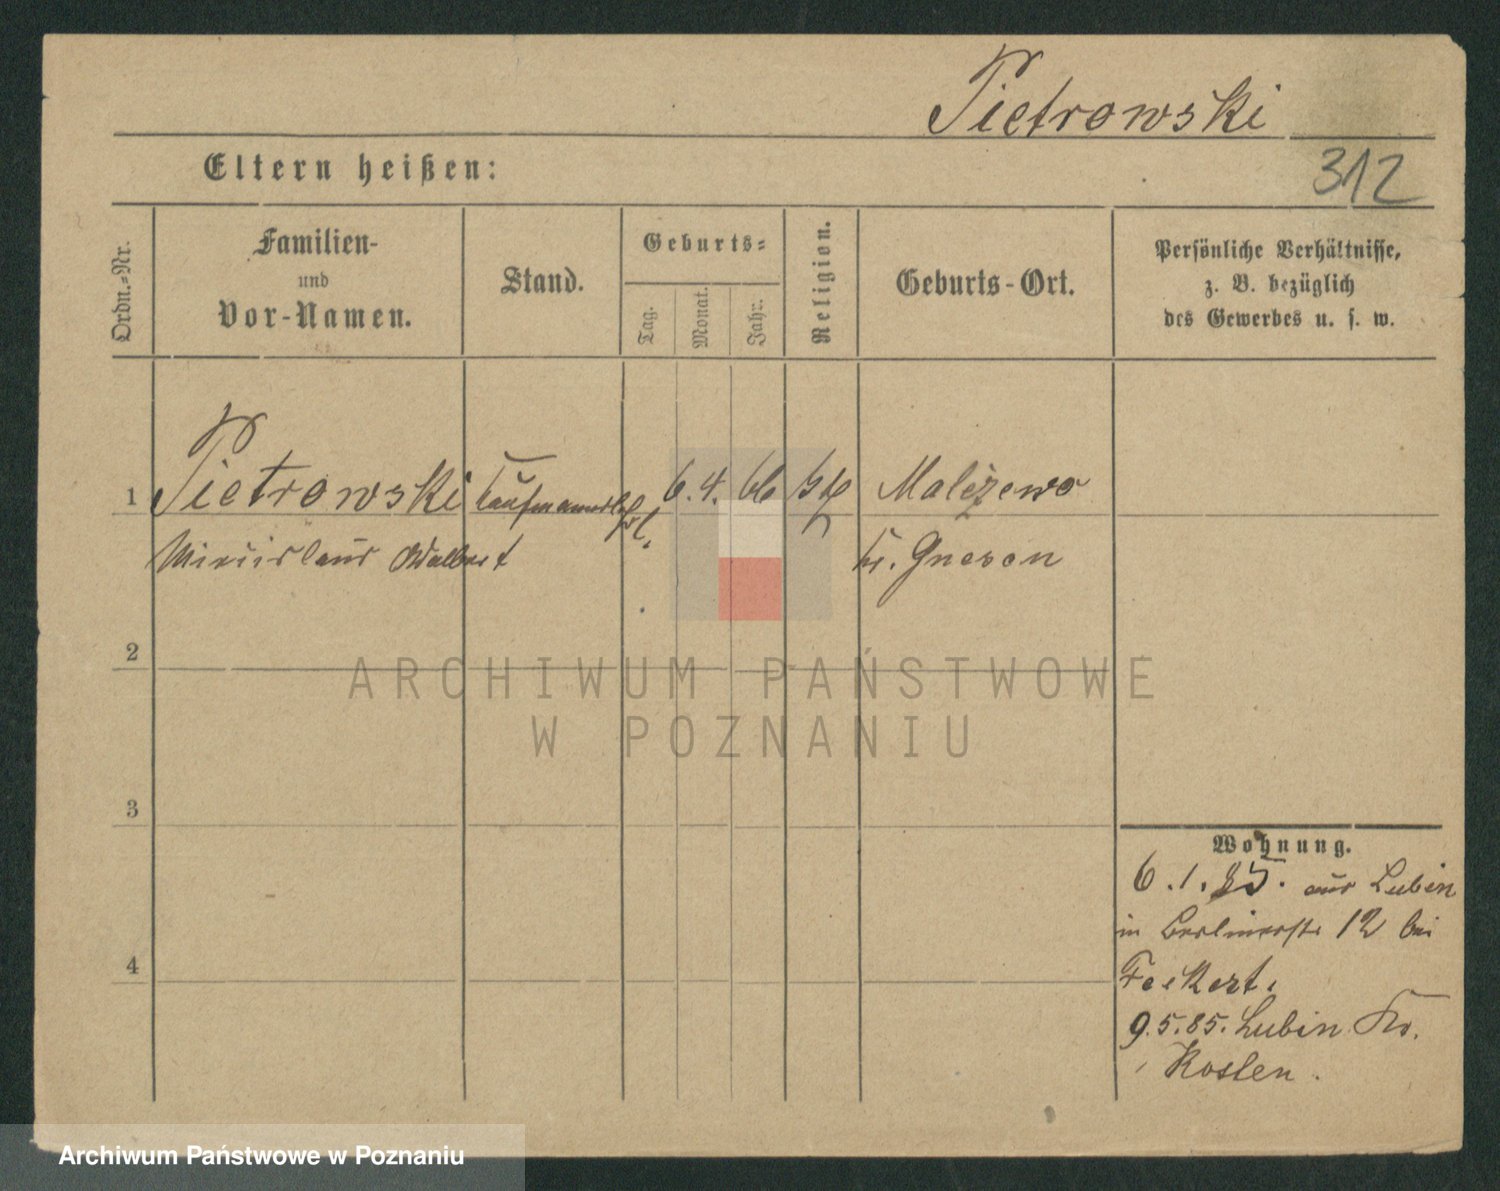 Pietrowski
312
Eltern heißen:
Ordn.-Nr.
Familien-
und
Vor-Namen.
Stand.
Geburts-
Tag.
Monat.
Jahr.
Religion.
Geburts-Ort.
Persönliche Verhältnisse,
z. B. bezüglich
des Gewerbes u. s. w.
1 Pietrowski 6. 4. 66 Malczewo
Adalbert Kr. Gnesen
2
3
4
Wohnung.
6. 1. 85. aus Lubin
in Berlinerstr 12 bei
Feikert.
9. 5. 85. Lubin Kr.
Kosten.
ARCHIWUM PAŃSTWOWE
W POZNANIU
Archiwum Państwowe w Poznaniu